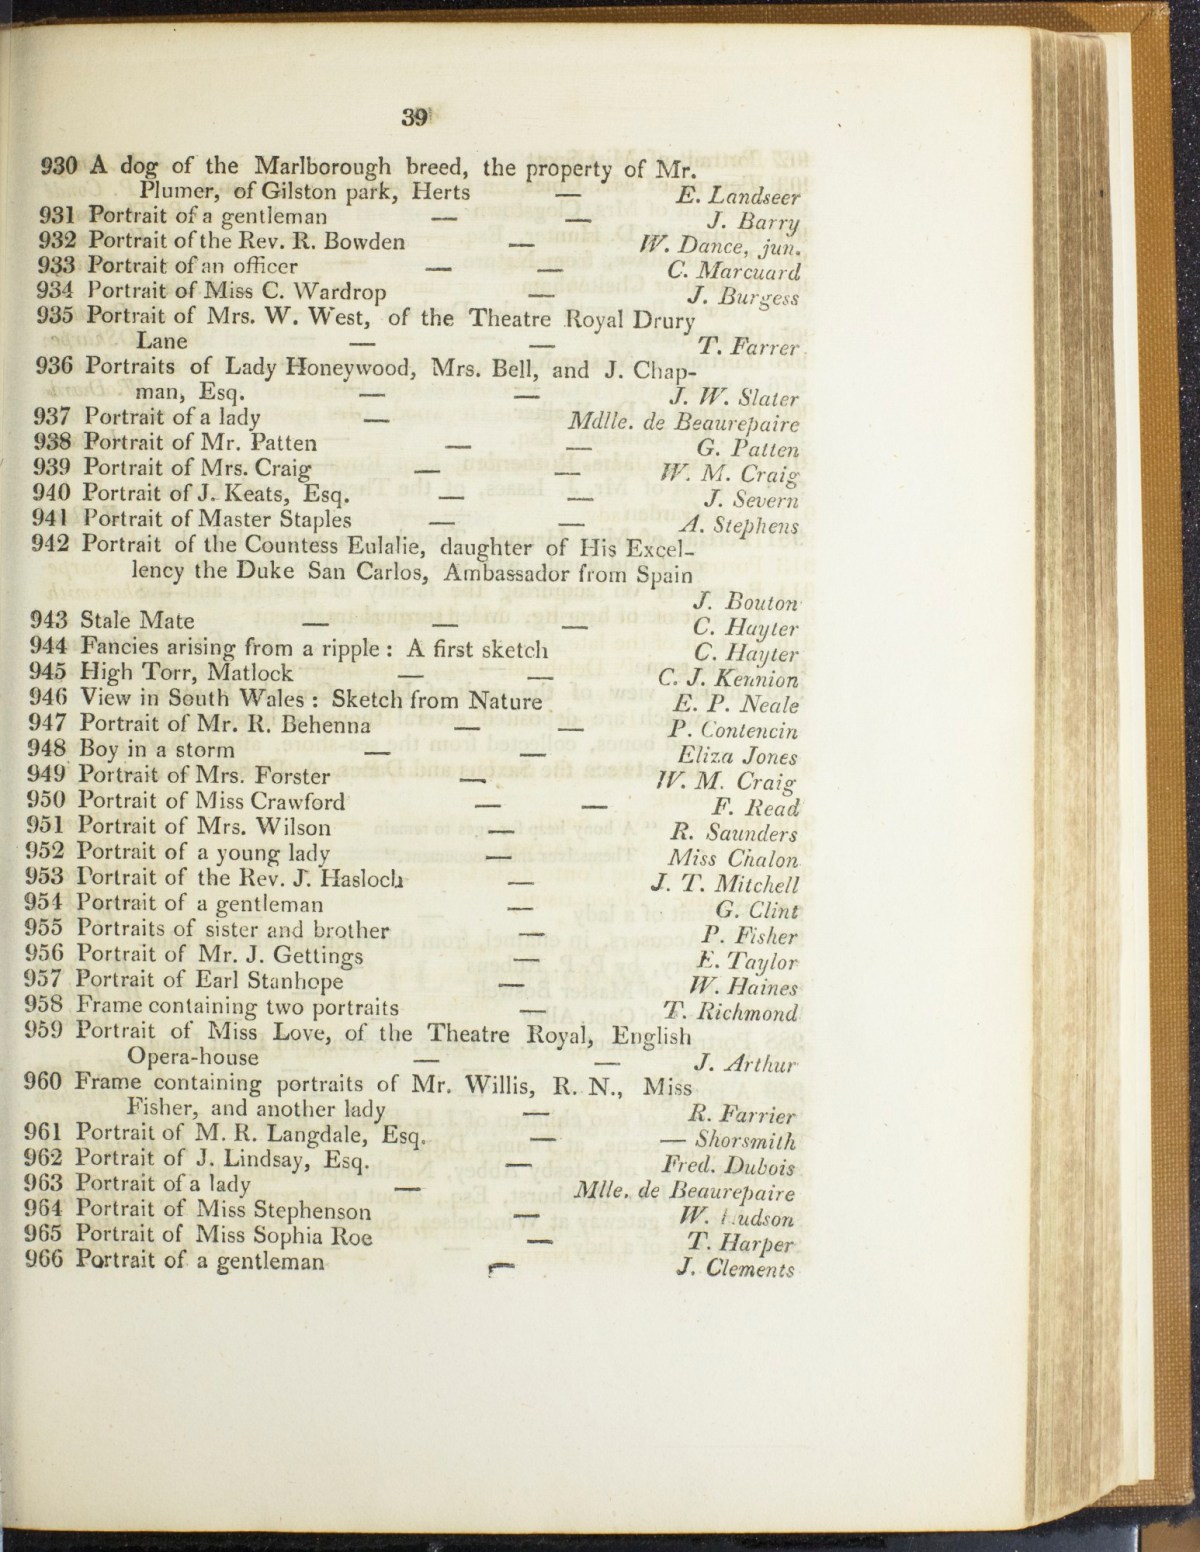 39
930 A dog of the Marlborough breed, the property of Mr.
Plumer, of Gilston park, Herts — E. Landseer
931 Portrait of a gentleman — — J. Barry
932 Portrait of the Rev. R. Bowden — W. Dance, jun.
933 Portrait of an officer — — C. Marcuard
934 Portrait of Miss C. Wardrop — J. Burgess
935 Portrait of Mrs. W. West, of the Theatre Royal Drury
Lane — — T. Farrer
936 Portraits of Lady Honeywood, Mrs. Bell, and J. Chap-
man, Esq. — — J. W. Slater
937 Portrait of a lady — Mdlle. de Beaurepaire
938 Portrait of Mr. Patten — — G. Patten
939 Portrait of Mrs. Craig — — W. M. Craig
940 Portrait of J. Keats, Esq. — — J. Severn
941 Portrait of Master Staples — — A. Stephens
942 Portrait of the Countess Eulalie, daughter of His Excel-
lency the Duke San Carlos, Ambassador from Spain
J. Bouton
943 Stale Mate — — — C. Hayter
944 Fancies arising from a ripple : A first sketch C. Hayter
945 High Torr, Matlock — — C. J. Kennion
946 View in South Wales : Sketch from Nature E. P. Neale
947 Portrait of Mr. R. Behenna — — P. Contencin
948 Boy in a storm — — Eliza Jones
949 Portrait of Mrs. Forster — W. M. Craig
950 Portrait of Miss Crawford — — F. Read
951 Portrait of Mrs. Wilson — R. Saunders
952 Portrait of a young lady — Miss Chalon
953 Portrait of the Rev. J. Hasloch — J. T. Mitchell
954 Portrait of a gentleman — G. Clint
955 Portraits of sister and brother — P. Fisher
956 Portrait of Mr. J. Gettings — E. Taylor
957 Portrait of Earl Stanhope — W. Haines
958 Frame containing two portraits — T. Richmond
959 Portrait of Miss Love, of the Theatre Royal, English
Opera-house — — J. Arthur
960 Frame containing portraits of Mr. Willis, R. N., Miss
Fisher, and another lady — R. Farrier
961 Portrait of M. R. Langdale, Esq. — — Shorsmith
962 Portrait of J. Lindsay, Esq. — Fred. Dubois
963 Portrait of a lady — Mlle. de Beaurepaire
964 Portrait of Miss Stephenson — W. Hudson
965 Portrait of Miss Sophia Roe — T. Harper
966 Portrait of a gentleman — J. Clements